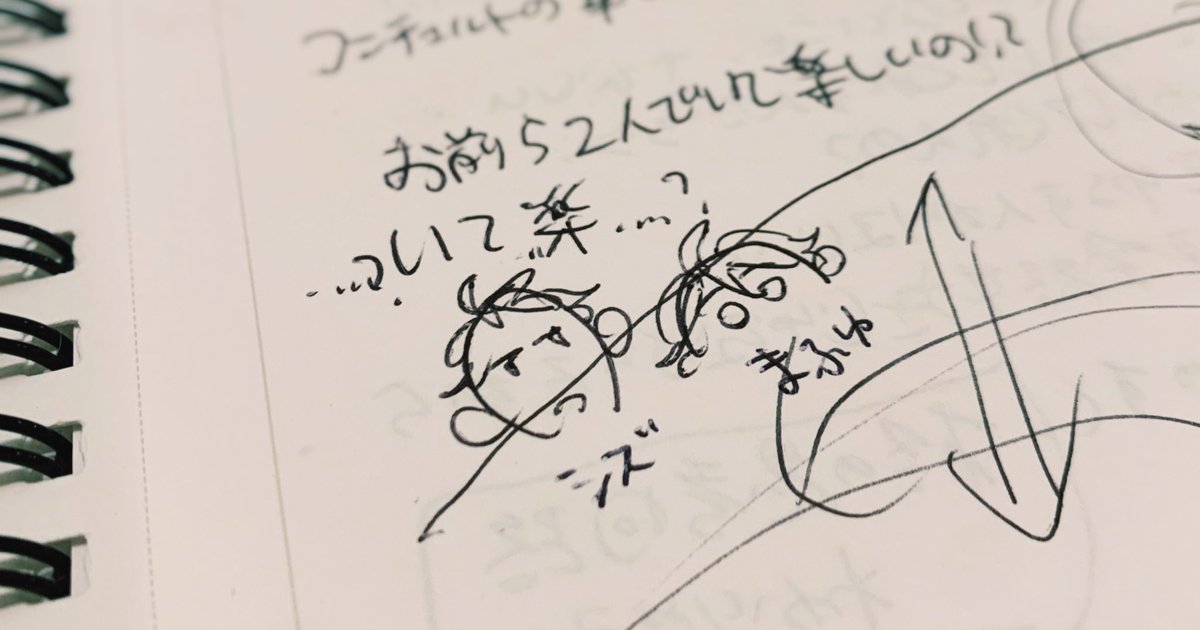 コンチェルトの
お前ら2人でいて楽しいの!?
...いて楽...?
シズ
まふゆ